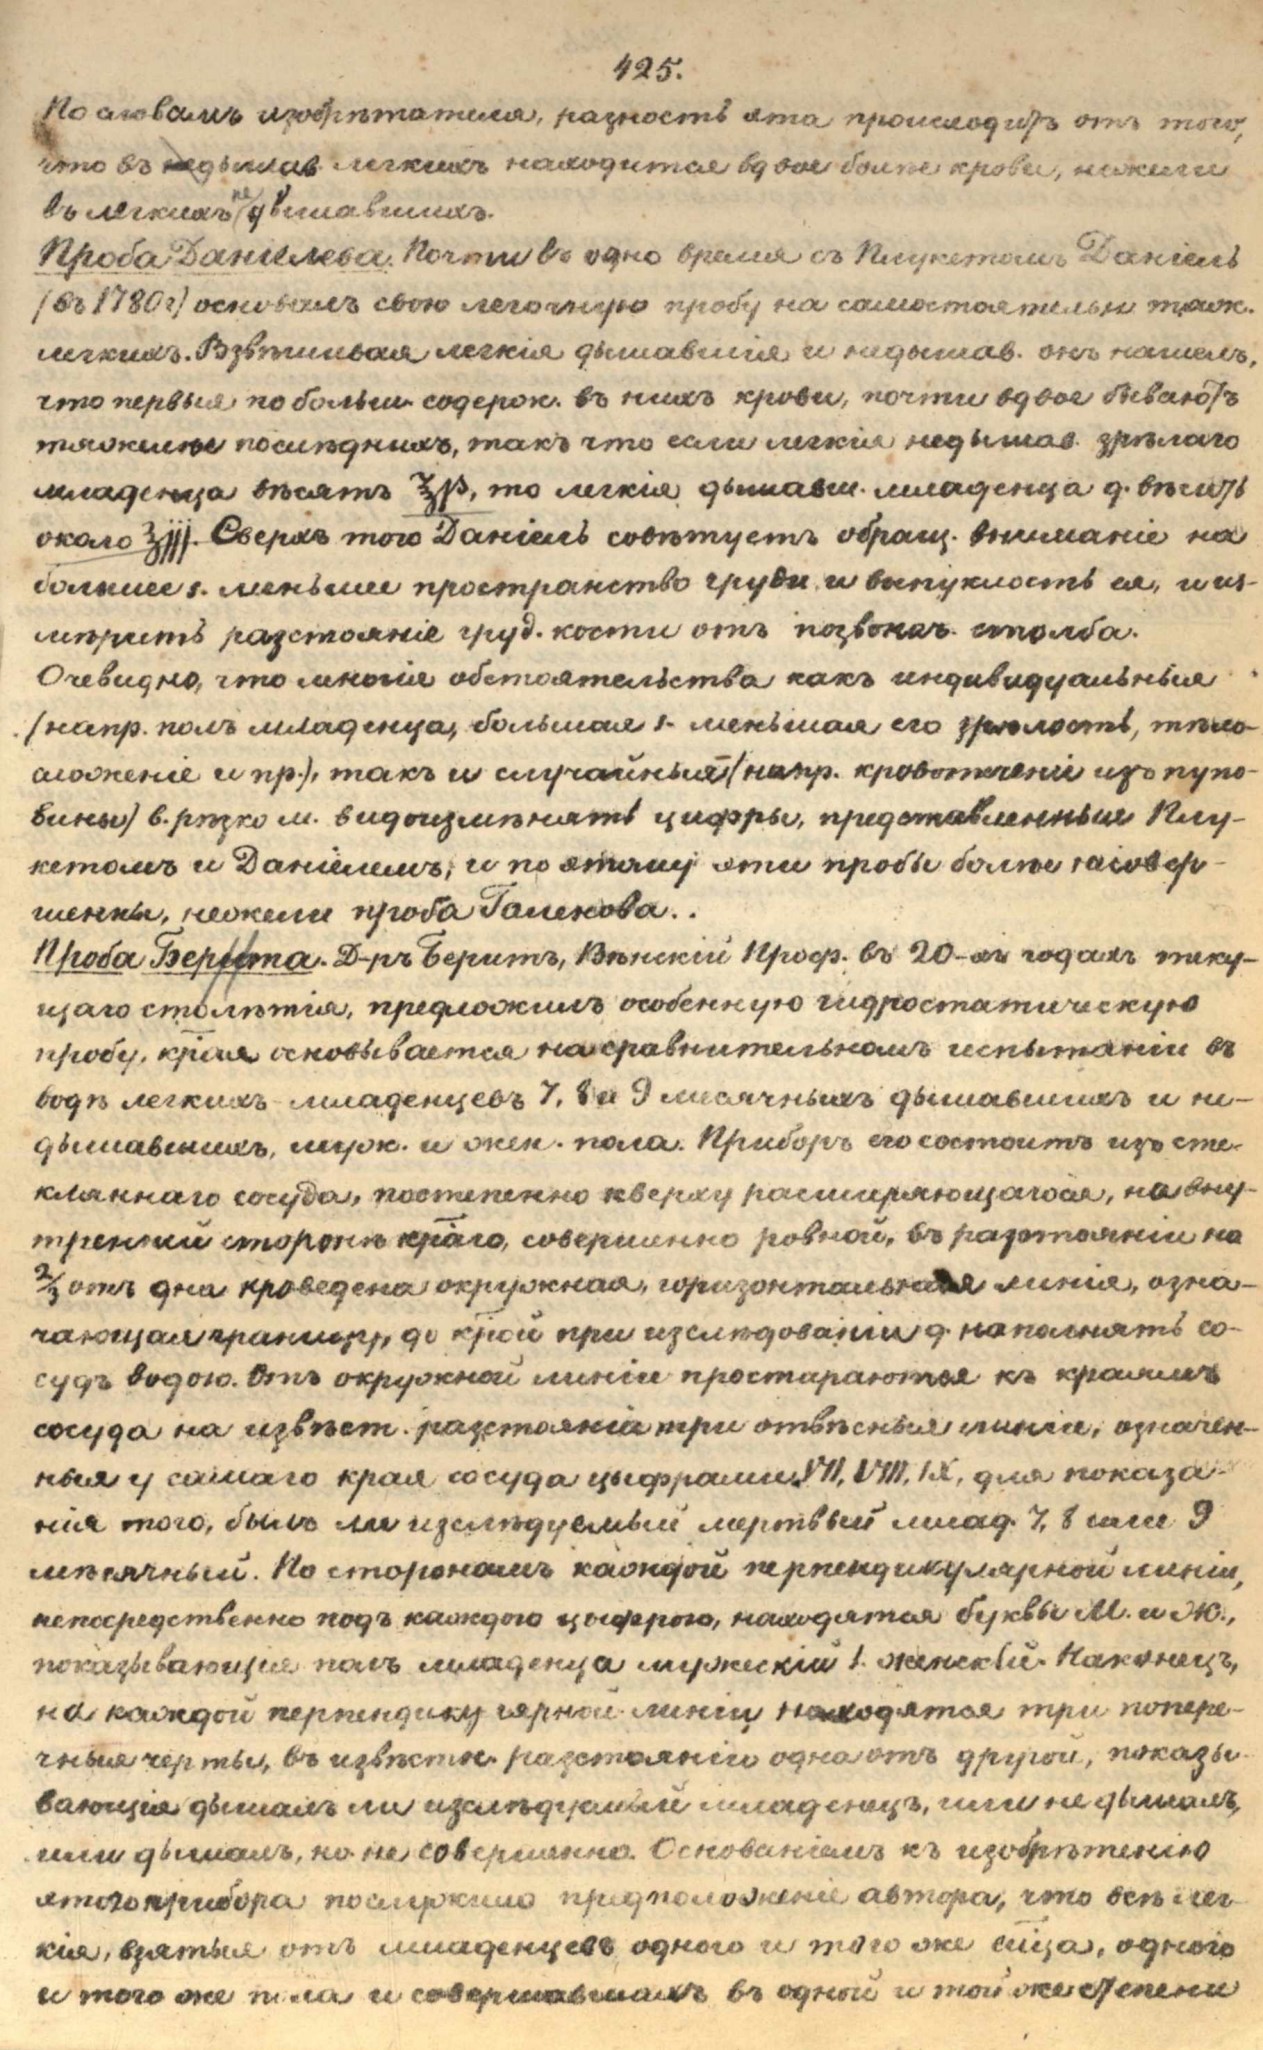 425.
По словамъ изобрѣтателя, разность эта происходитъ отъ того,
что въ дышав. легкихъ находится вдвое болѣе крови, нежели
въ легкихъ не дышавшихъ.
Проба Даніелева. Почти въ одно время съ Плукетомъ Даніель
(въ 1780 г) основалъ свою легочную пробу на самостоятельн тяж.
легкихъ. Взвѣшивая легкія дышавшія и недышав. онъ нашелъ,
что первыя по больш. содерж. въ нихъ крови, почти вдвое бываютъ
тяжелѣе послѣднихъ, такъ что если легкія недышав. зрѣлаго
младенца вѣсятъ ℥jß, то легкія дышавш. младенца д. вѣсить
около ℥jjj. Сверхъ того Даніель совѣтуетъ обращ. вниманіе на
большее s. меньшее пространство груди и выпуклость ея, и из-
мѣрить разстояніе груд. кости отъ позвоноч. столба.
Очевидно, что многія обстоятельства какъ индивидуальныя
(напр. полъ младенца, большая s. меньшая его зрѣлость, тѣло-
сложеніе и пр.), такъ и случайныя (напр. кровотеченіе изъ пупо-
вины) в. рѣзко м. видоизмѣнять цифры, представленныя Плу-
кетомъ и Даніелемъ, и по этому эти пробы болѣе несовер-
шенны, нежели проба Галенова..
Проба Бернта. Д-ръ Бернтъ, Вѣнскій Проф. въ 20-хъ годахъ теку-
щаго столѣтія, предложилъ особенную гидростатическую
пробу, края основывается на сравнительномъ испытаніи въ
водѣ легкихъ младенцевъ 7, 8 и 9 месячныхъ дышавшихъ и не-
дышавшихъ, муж. и жен. пола. Приборъ его состоитъ изъ сте-
кляннаго сосуда, постепенно кверху расширяющагося, на вну-
тренней сторонѣ краго, совершенно ровной, въ разстояніи на
2/3 отъ дна проведена окружная, горизонтальная линія, озна-
чающая границу, до крой при изслѣдованіи д. наполнять со-
судъ водою. Отъ окружной линіи простираются къ краямъ
сосуда на извѣст. разстояніи три отвѣсныя линіи, означен-
ныя у самаго края сосуда цыфрами VII, VIII, IX, для показа-
нія того, былъ ли изслѣдуемый мертвый млад. 7, 8 или 9
мѣсячный. По сторонамъ каждой перпендикулярной линіи,
непосредственно подъ каждою цыфрою, находятся буквы М. и Ж.,
показывающія полъ младенца мужескій s. женскій. Наконецъ,
на каждой перпендикулярной линіи находятся три попере-
чныя черты, въ извѣстн. разстояніи одна отъ другой, показы-
вающія дышалъ ли изслѣдуемый младенецъ, или не дышалъ,
или дышалъ, но не совершенно. Основаніемъ къ изобрѣтенію
этого прибора послужило предположеніе автора, что всѣ лег-
кія, взятыя отъ младенцевъ одного и того же мца, одного
и того же пола и совершавшихъ въ одной и той же степени